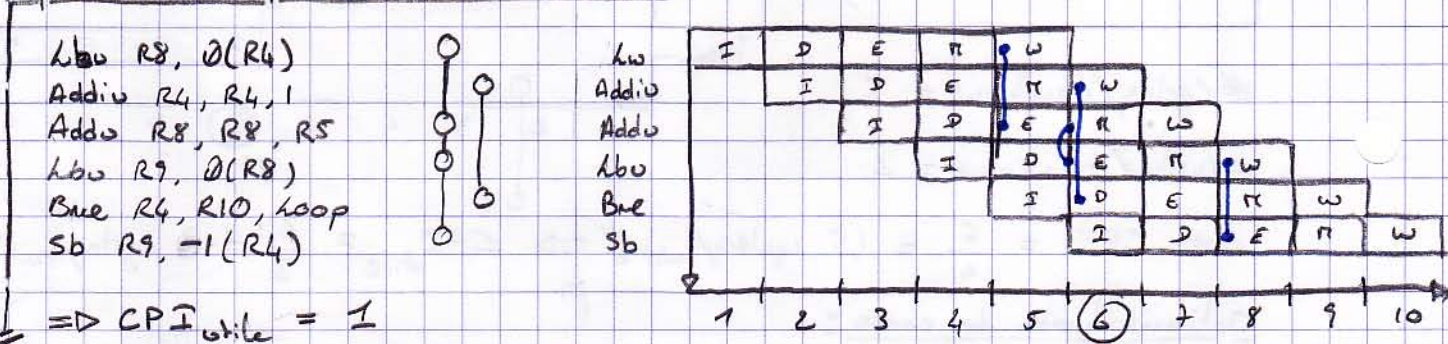 Lbu R8, 0(R4)
Addiu R4, R4, 1
Addu R8, R8, R5
Lbu R9, 0(R8)
Bne R4, R10, Loop
Sb R9, -1(R4)
=> CPI utile = 1
Lw I D E M W
Addiu I D E M W
Addu I D E M W
Lbu I D E M W
Bne I D E M W
Sb I D E M W
1 2 3 4 5 6 7 8 9 10